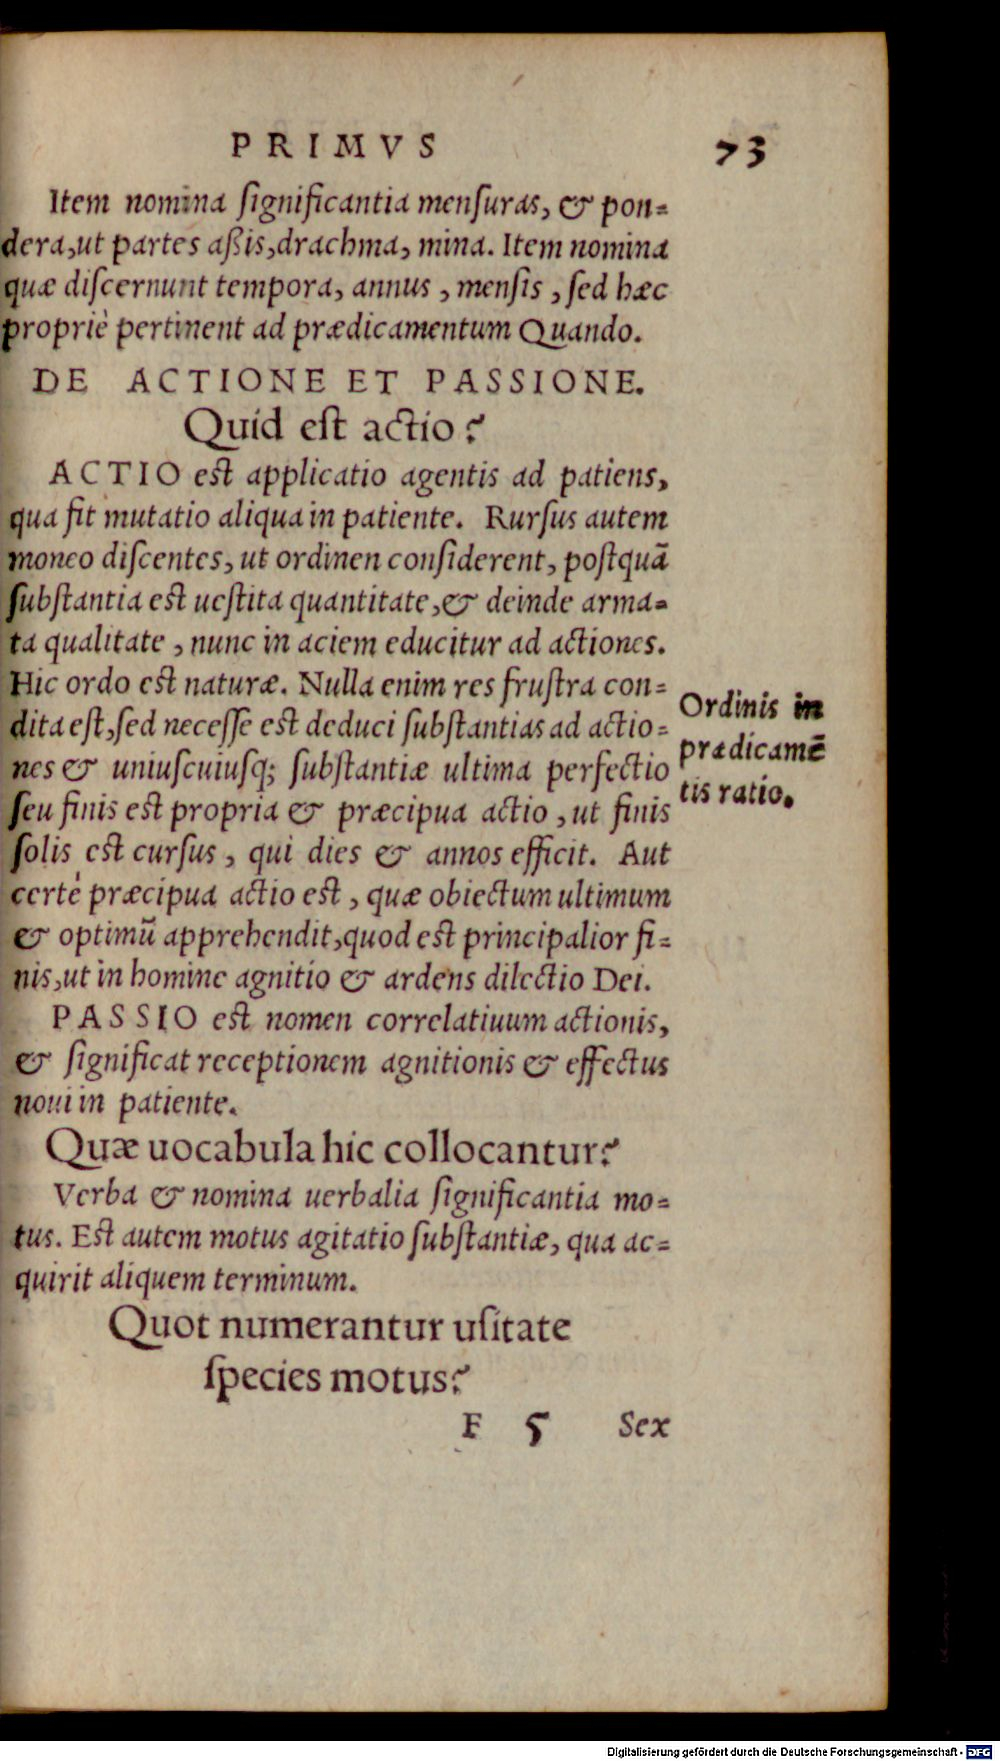 PRIMVS 73
Item nomina ſignificantia menſuras, & pon=
dera,ut partes aßis,drachma, mina. Item nomina
quæ diſcernunt tempora, annus , menſis , ſed hæc
propriè pertinent ad prædicamentum Quando.
DE ACTIONE ET PASSIONE.
Quid eſt actio?
ACTIO eſt applicatio agentis ad patiens,
qua fit mutatio aliqua in patiente. Rurſus autem
moneo diſcentes, ut ordinen conſiderent, poſtquã
ſubſtantia eſt ueſtita quantitate,& deinde arma=
ta qualitate , nunc in aciem educitur ad actiones.
Hic ordo eſt naturæ. Nulla enim res fruſtra con=
dita eſt,ſed neceſſe eſt deduci ſubſtantias ad actio=
nes & uniuſcuiuſq; ſubſtantiæ ultima perfectio
ſeu finis eſt propria & præcipua actio , ut finis
ſolis eſt curſus , qui dies & annos efficit. Aut
certè præcipua actio eſt , quæ obiectum ultimum
& optimũ apprehendit,quod eſt principalior fi=
nis,ut in homine agnitio & ardens dilectio Dei.
PASSIO eſt nomen correlatiuum actionis,
& ſignificat receptionem agnitionis & effectus
noui in patiente.
Quæ uocabula hic collocantur?
Verba & nomina uerbalia ſignificantia mo=
tus. Eſt autem motus agitatio ſubſtantiæ, qua ac=
quirit aliquem terminum.
Quot numerantur uſitate
ſpecies motus?
F 5 Sex
Ordinis in
prædicamẽ
tis ratio.
Digitalisierung gefördert durch die Deutsche Forschungsgemeinschaft - DFG